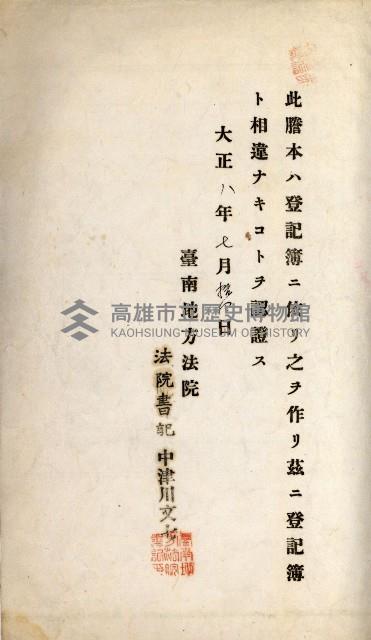 此謄本ハ登記簿ニ依リ之ヲ作リ茲ニ登記簿
ト相違ナキコトヲ認證ス
大正八年七月 日
臺南地方法院
法院書記 中津川文
高雄市立歷史博物館
KAOHSIUNG MUSEUM OF HISTORY